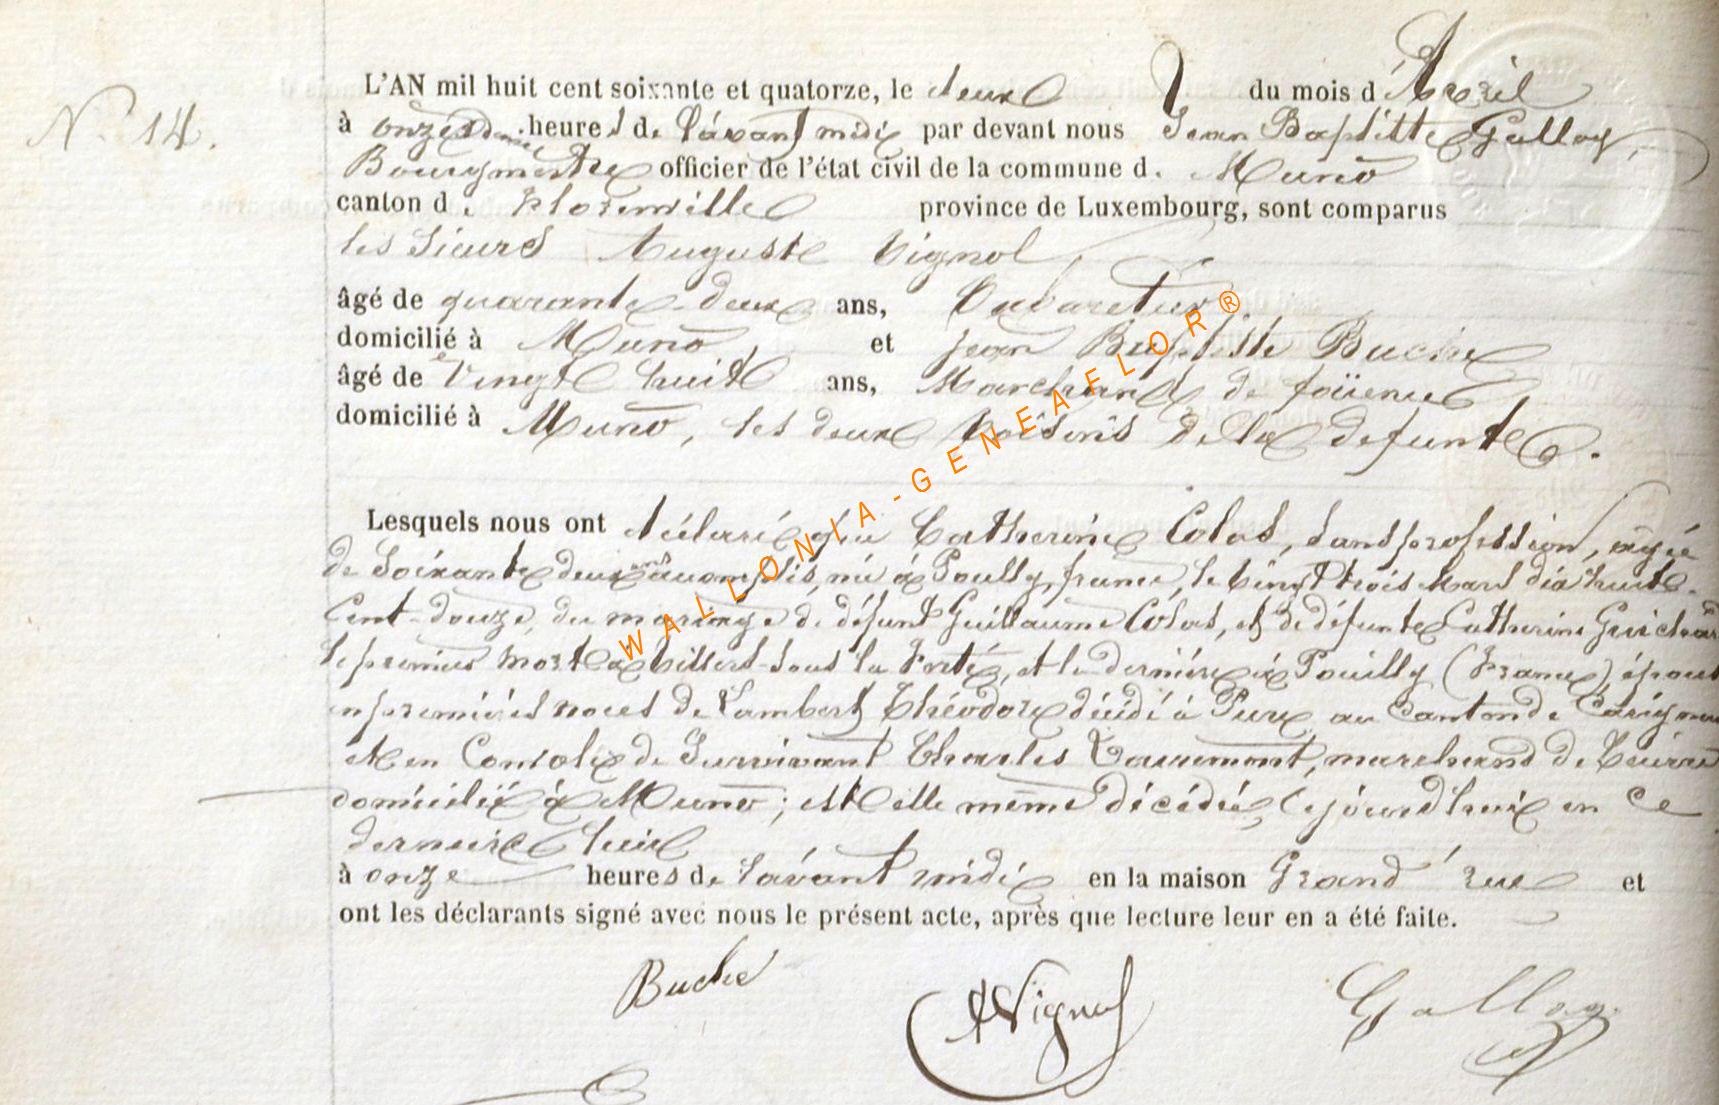 N° 14.
L'AN mil huit cent soixante et quatorze, le deux du mois d'Avril
à onze heures de l'avant midi par devant nous Jean Baptiste Galloy,
Bourgmestre officier de l'état civil de la commune de Muno
canton de Florenville province de Luxembourg, sont comparus
les sieurs Auguste Vignol,
âgé de quarante-deux ans, Cabaretier
domicilié à Muno et Jean Baptiste Buché
âgé de Vingt huit ans, Marchand de faïence,
domicilié à Muno, les deux Voisins de la defunte.
Lesquels nous ont déclaré que Catherine Colas, sans profession, agée
de Soixante deux ans accomplis, née à Pouilly, france, le vingt trois Mars dix huit-
Cent-douze, du mariage de défunt Guillaume Colas, et de défunte Catherine
le premier mort à Villers-sous la Ferté, et la dernière à Pouilly (France), épouse
en premières noces de Lambert Théodore décédé à Pure au Canton de Carignan
et en Convole de Survivant Charles marchand de
domicilié à Muno; est elle même décédée, Cejourd'hui en Ce
dernier lieu
à onze heures de l'avant midi en la maison Grand'rue et
ont les déclarants signé avec nous le présent acte, après que lecture leur en a été faite.
Buché AVignol Galloy
WALLONIA-GENEAFLOR®